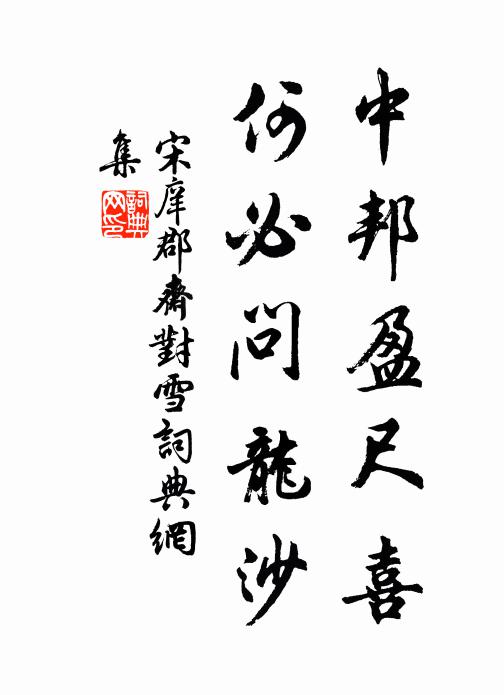 中邦盈尺喜
何必問龍沙
宋庠郡齋對雪詞典網
集
詞典網印